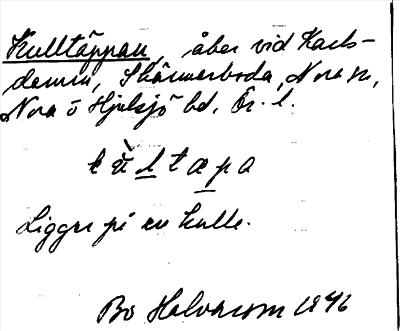 Kulltäppan, åker vid Karls-
damm, Skärmarboda, Nora sn,
Nora o Hjulsjö bd, Ör. l.
kùltæpa
Ligger på en kulle.
Bo Halvarson 1946